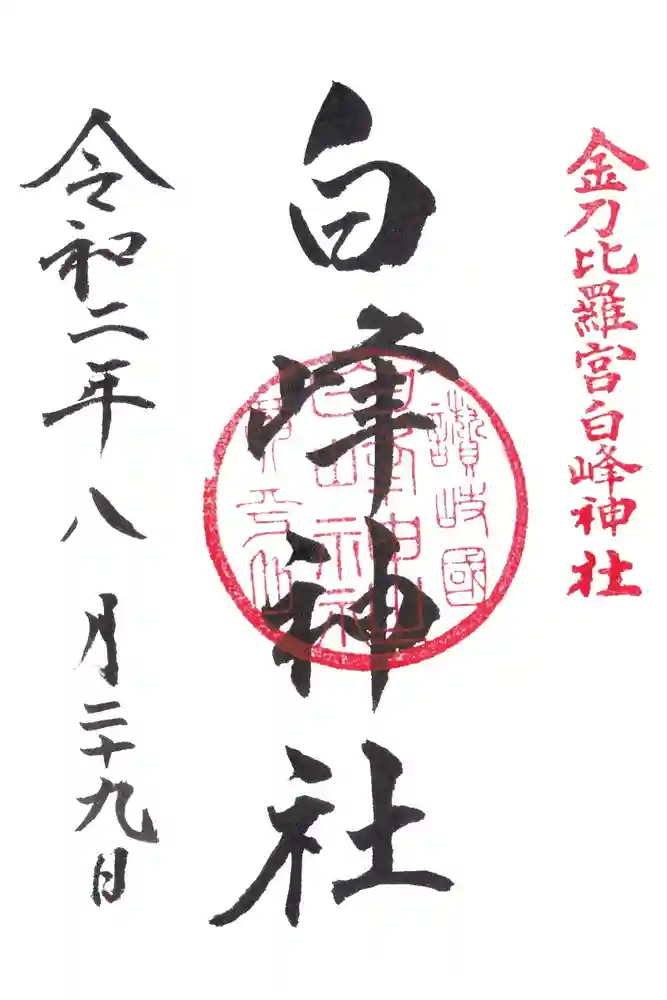 金刀比羅宮白峰神社
白峰神社
讃岐國
白峰神社
令和二年八月二十九日